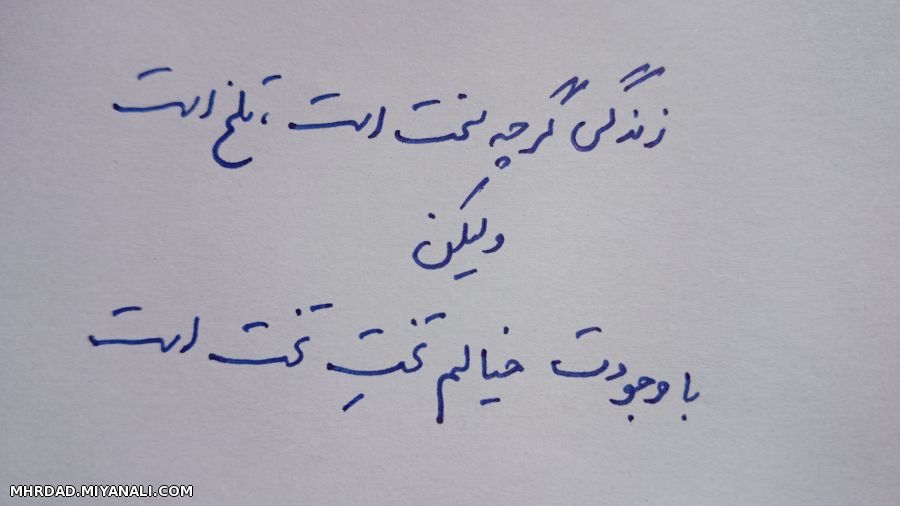 زندگی گرچه سخت است، تلخ است
ولیکن
با وجودت خیالم تختِ تخت است
MHRDAD.MIYANALI.COM